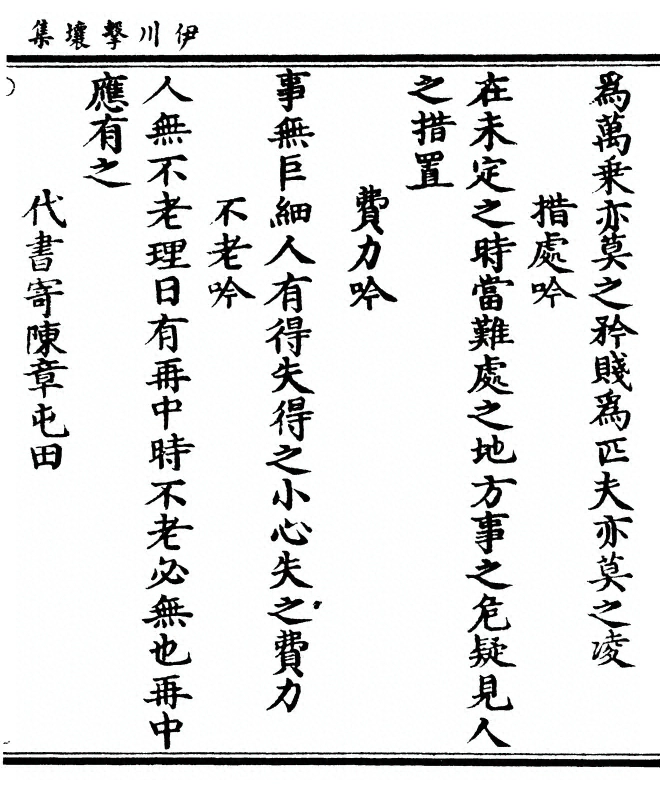 伊川擊壤集
為萬乘亦莫之矜賤為匹夫亦莫之凌
措處吟
在未定之時當難處之地方事之危疑見人
之措置
費力吟
事無巨細人有得失得之小心失之費力
不老吟
人無不老理日有再中時不老必無也再中
應有之
代書寄陳章屯田